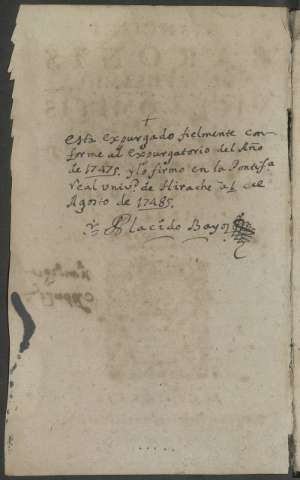 +
Esta expurgado fielmente con-
forme al Expurgatorio del Año
de 1747. y lo firmo en la Pontifª.
real univ.ᵈ de Hirache de
Agosto de 1748.
Fr Placido Bayo